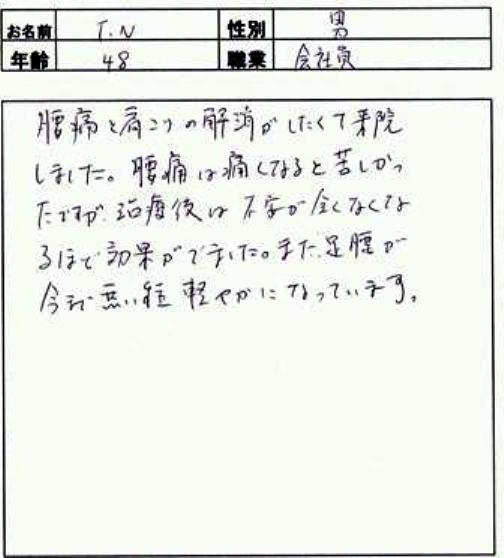 お名前 T.N 性別 男
年齢 48 職業 会社員
腰痛と肩こりの解消がしたくて来院
しました。腰痛は痛くなると苦しかっ
たですが、治療後は不安が全くなくな
るほど効果がでました。また足腰が
今まで無い程軽やかになっています。